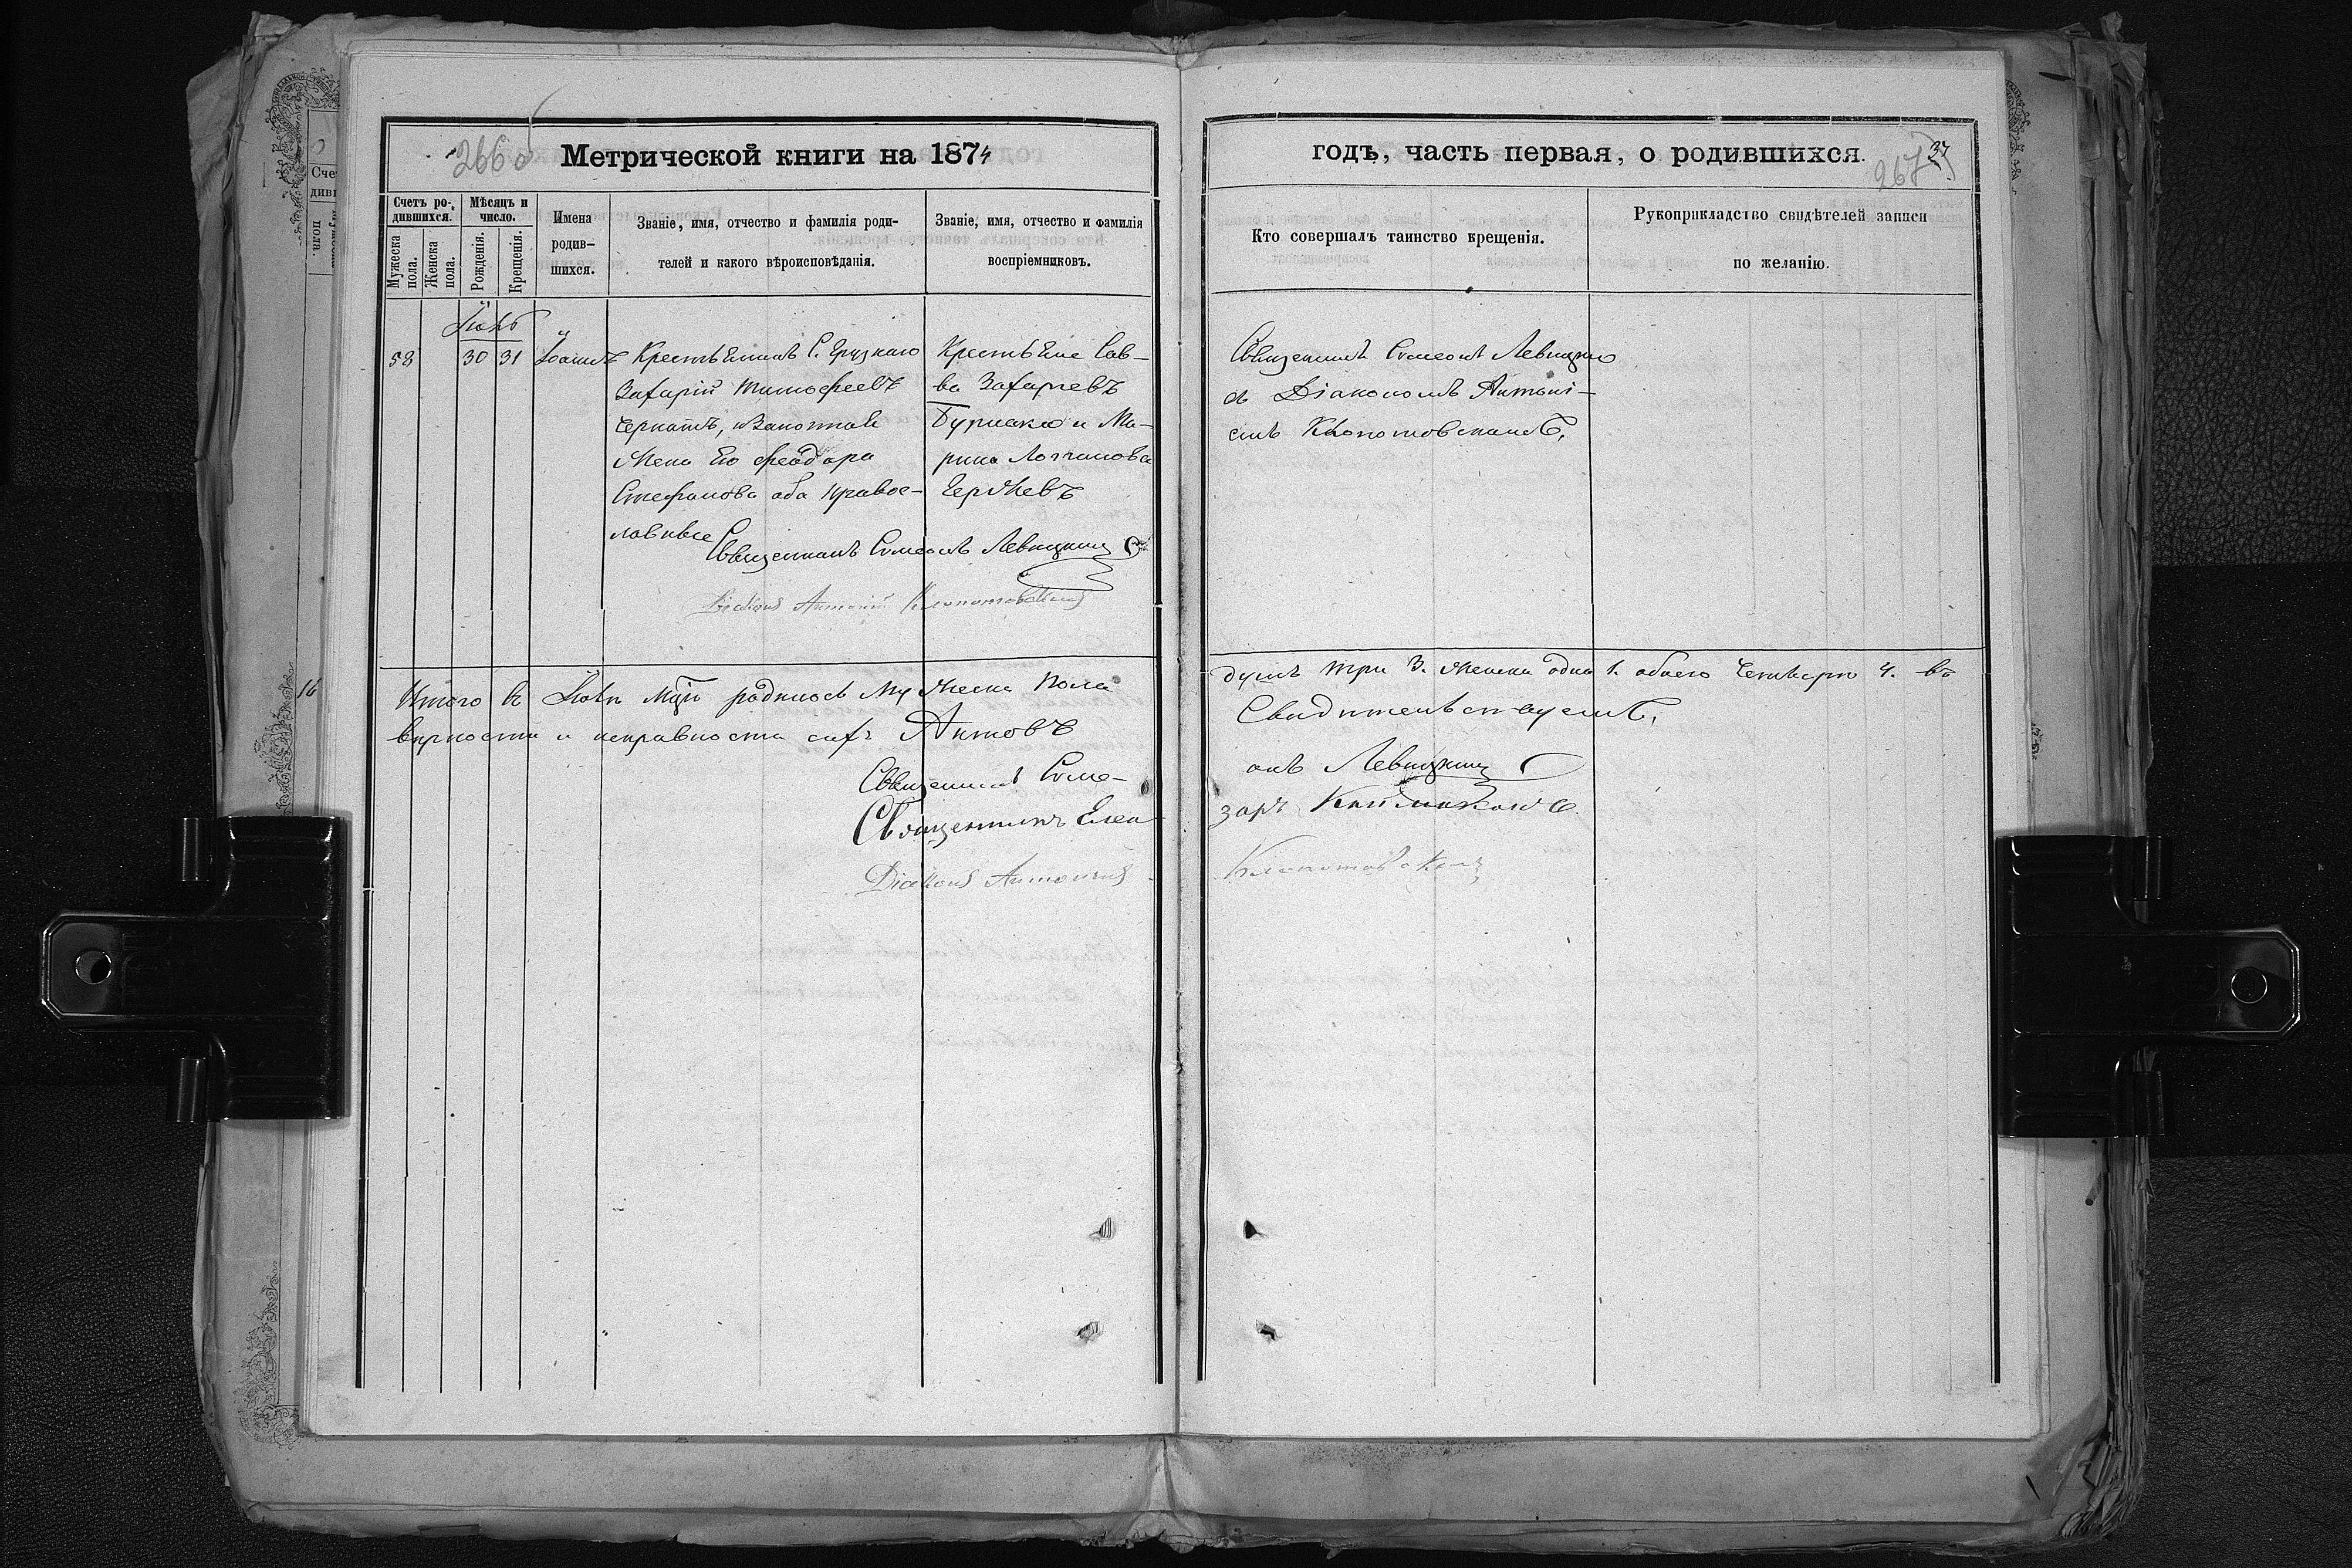 266об
Метрической книги на 1874
годъ, часть первая, о родившихся.
37
267
Счетъ ро-
дившихся.
Мѣсяцъ и
число.
Мужеска
пола.
Женска
пола.
Рожденія.
Крещенія.
Имена
родив-
шихся.
Званіе, имя, отчество и фамилія роди-
телей и какого вѣроисповѣданія.
Званіе, имя, отчество и фамилія
воспріемниковъ.
Кто совершалъ таинство крещенія.
Рукоприкладство свидѣтелей записи
по желанію.
58
30
31
Іоаннъ
Крестьянинъ С. Грузкаго
Захарій Тимофеевъ
и Законная
Жена Его Феодора
Стефанова оба Правос-
лавные
Крестьяне Сав-
ва Захаріевъ
Бурлака и Ма-
рина Логгинова
Священникъ Симеонъ Левицкій
съ Діакономъ Антоні-
емъ Клопотовскимъ.
Священникъ Симеонъ Левицкий
Діаконъ Антоній Клопотовский
16
Итого въ родилось Мужеска Пола
душъ три 3. Женска одна 1. обоего Четверо 4. въ
верности и исправности сихъ Актовъ
Свидительствуемъ.
Священникъ Симе-
онъ Левицкий
Священникъ Елеа-
заръ
Діаконъ Антоний
Клопотовский